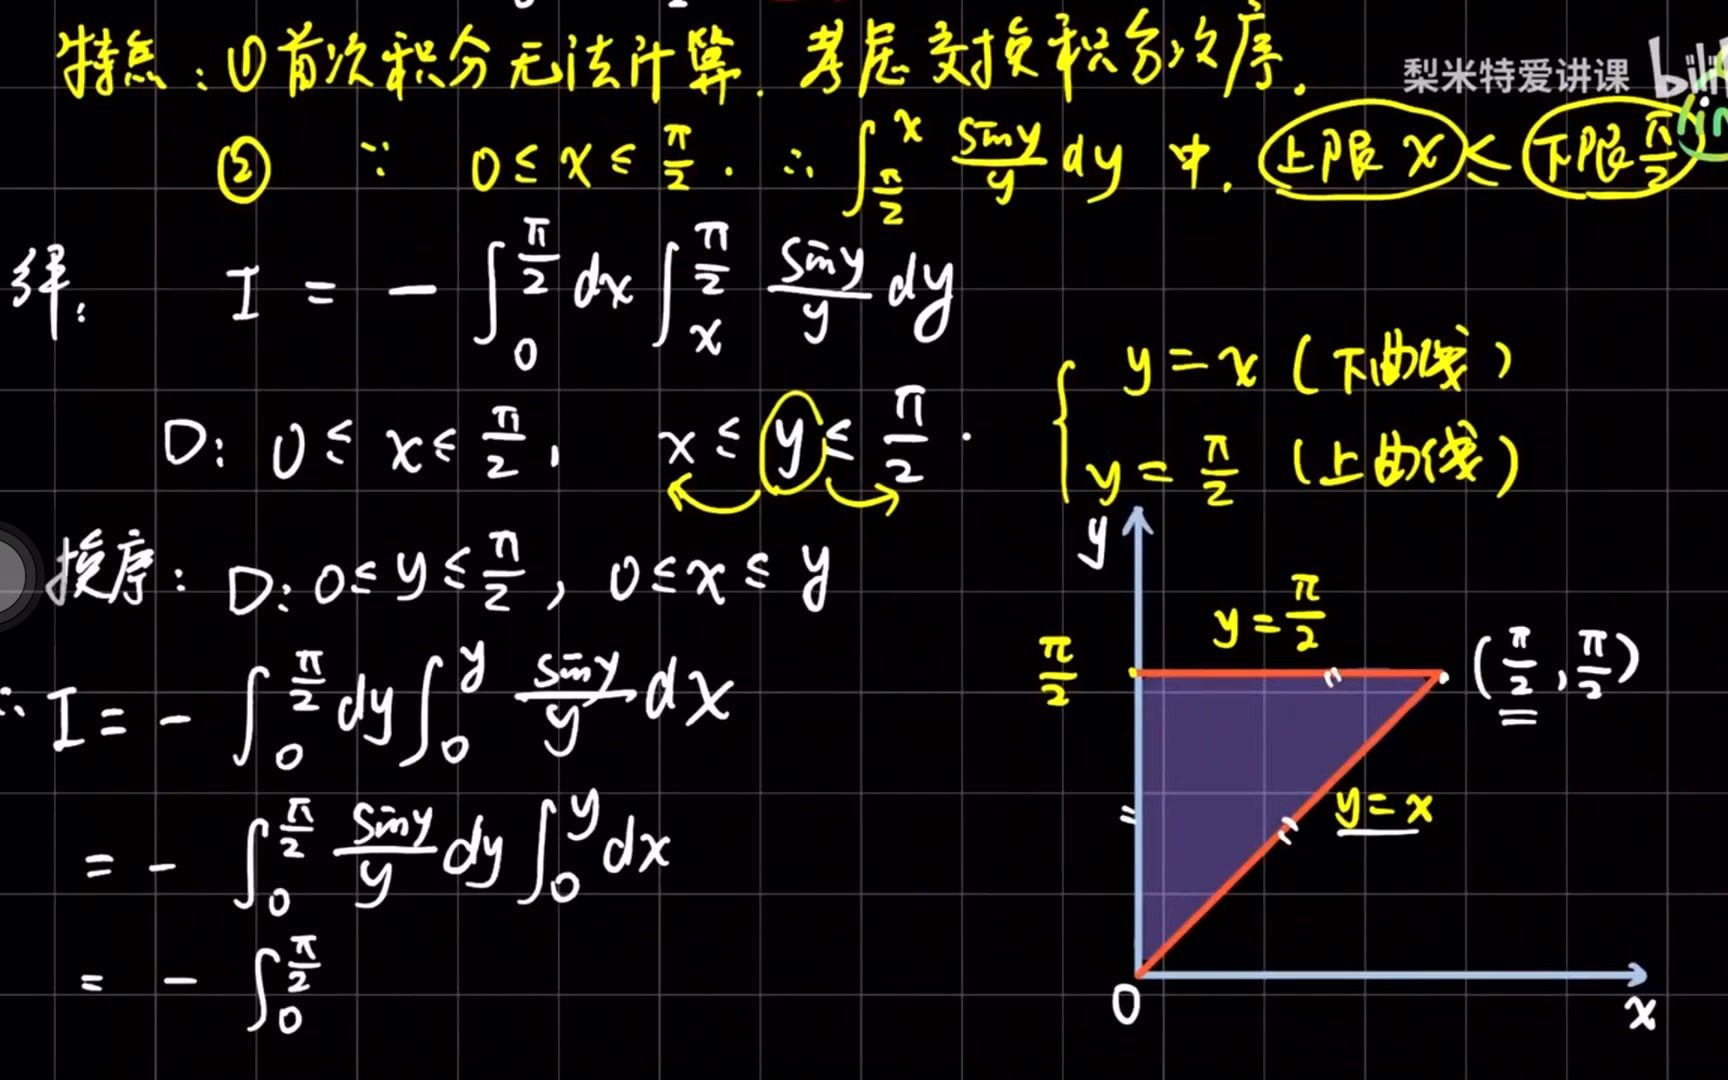 特点：①首次积分无法计算．考虑交换积分次序．
梨米特爱讲课
② ∵ 0 ≤ x ≤ π/2 . ∴ ∫_{π/2}^{x} (sin y / y) dy 中. 上限 x ≤ 下限 π/2
解： I = - ∫_{0}^{π/2} dx ∫_{x}^{π/2} (sin y / y) dy
D: 0 ≤ x ≤ π/2 , x ≤ y ≤ π/2 .
{ y = x (下曲线)
y = π/2 (上曲线)
换序： D: 0 ≤ y ≤ π/2 , 0 ≤ x ≤ y
∴ I = - ∫_{0}^{π/2} dy ∫_{0}^{y} (sin y / y) dx
= - ∫_{0}^{π/2} (sin y / y) dy ∫_{0}^{y} dx
= - ∫_{0}^{π/2}
y
y = π/2
π/2
(π/2 , π/2)
y = x
0
x